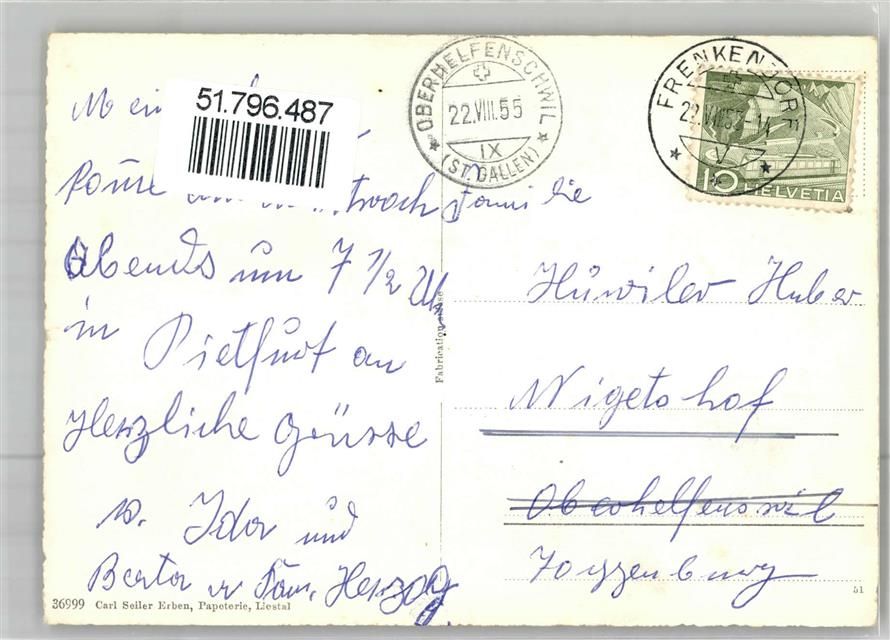 51.796.487
OBERHELFENSCHWIL
22.VIII.55
IX
(ST. GALLEN)
FRENKENDORF
10 HELVETIA
Familie
Abends um 7 1/2 Uh
in Dietfurt an
Herzliche Grüsse
v. Ida und
Berta u Fam. Herzog
Hüwiler Huber
Wigetshof
Oberhelfenswil
Toggenburg
Fabrication suisse
36999 Carl Seiler Erben, Papeterie, Liestal
51